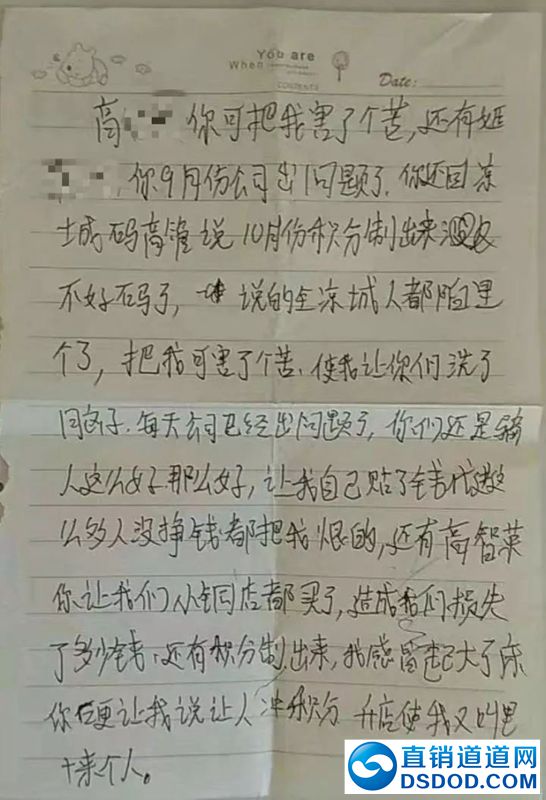 You are
When
CONTENTS
Date:
高 你可把我害了个苦,还有姬
你9月份公司出问题了.你还回凉
城码高准说10月份积分制出来
不好码了, 说的全凉城人都脑里
个了,把我可害了个苦.使我让你们洗了
同脑子.每天公司已经出问题了,你们还是骗
人这么好那么好,让我自己贴了钱代这
么多人没挣钱都把我恨的,还有高智莱
你让我们小铜店都买了,造成我们损失
了多少钱,还有积分制出来,我感冒 大了床
你硬让我说让人冲积分 开店使我又叫
十来个人。
直销道道网
DSDOD.COM